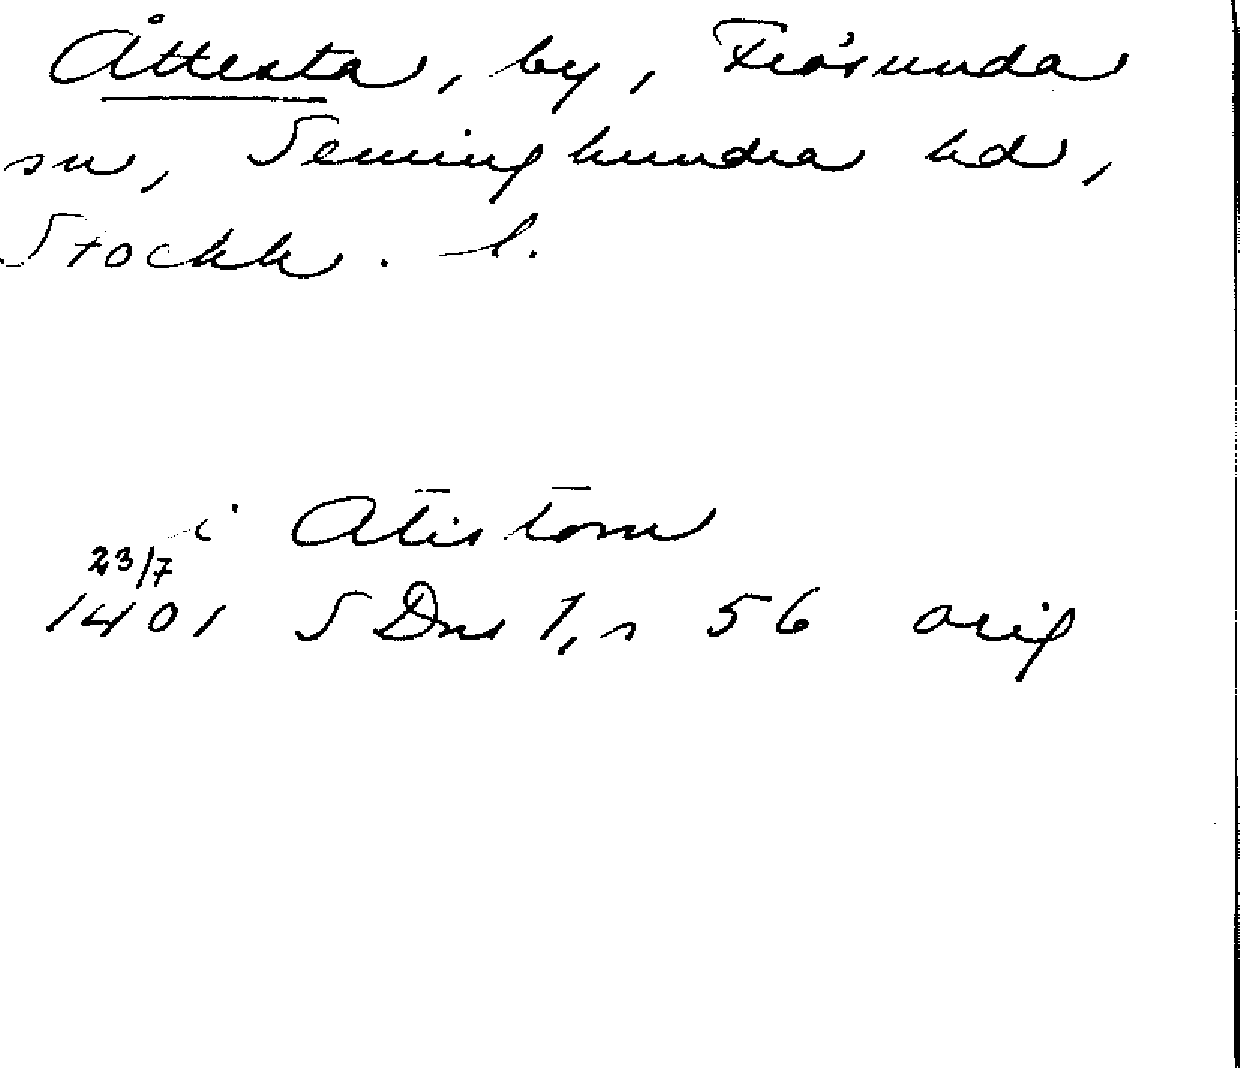 Åttersta, by, Frösunda
sn, Seminghundra hd,
Stockh. l.
i Atistom
23/7
1401 SDns 1, s 56 orig